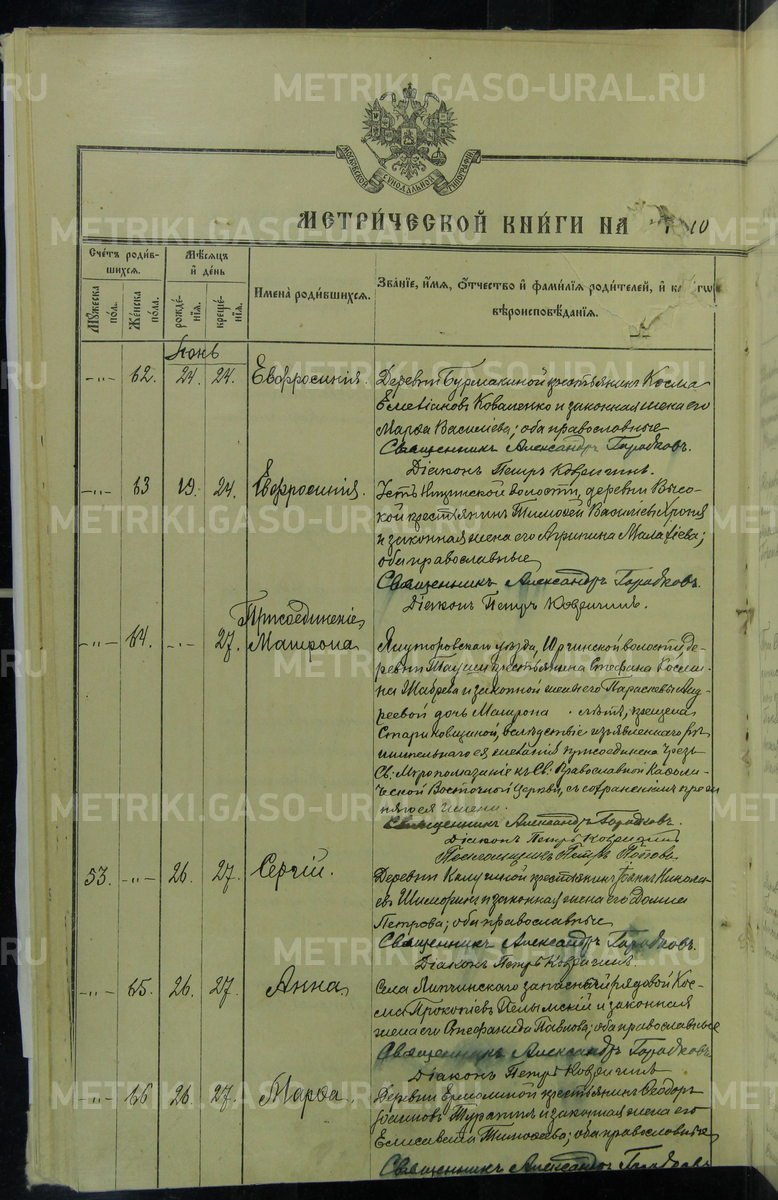 МОСКОВСКОЙ СѴНОДАЛЬНОЙ ТИПОГРАФІИ
МЕТРИ́ЧЕСКОЙ КНИ́ГИ НА 10
Сче́тъ роди́в-
шихся.
Мѣ́сяцъ
и҆ де́нь
Мꙋ́жеска
по́л.
Же́нска
по́ла.
рожде́-
нїѧ.
креще́-
нїѧ.
И҆мена̀ роди́вшихсѧ.
Зва́нїе, и҆́мѧ, ѻ҆́тчество и҆ фами́лїѧ роди́телей, и҆
вѣроисповѣ́данїѧ.
Іюнь
-"- 62. 24. 24. Евфросинія.
Деревни Бурмакиной крестьянинъ Косма
Коваленко и законная жена его
Марѳа Васильева; оба православные
Священникъ Александръ Городковъ.
Діаконъ Петръ Ковригинъ.
-"- 63 19. 24. Евфросинія.
Усть-Ницинской волости, деревни Высо-
кой крестьянинъ Тимоѳей Васильевъ
и законная жена его Агрипина Малаѳіева;
оба православные
Священникъ Александръ Городковъ.
Діаконъ Петръ Ковригинъ.
Присоединеніе
-"- 64. -"- 27. Матрона
Ялуторовскаго уѣзда, Юргинской волости, де-
ревни крестьянина Стефана Косми-
на и законной жены его Параскевы Анд-
реевой дочь Матрона лѣтъ, крещена
вслѣдствіе изъявленнаго
ея желанія присоединена чрезъ
Св. Мѵропомазаніе къ Св. Православной Каѳоли-
ческой Восточной Церкви, съ сохраненіемъ
имени.
Священникъ Александръ Городковъ.
Діаконъ Петръ Ковригинъ
Псаломщикъ Петръ
53. -"- 26. 27. Сергій.
Деревни крестьянинъ Іоаннъ Никола-
евъ и законная жена его Домна
Петрова; оба православные
Священникъ Александръ Городковъ.
Діаконъ Петръ Ковригинъ.
-"- 65. 26. 27. Анна
Села Липчинскаго запасный рядовой Кос-
ма Прокопіевъ Пелымскій и законная
жена его Стефанида Павлова; оба православные
Священникъ Александръ Городковъ
Діаконъ Петръ Ковригинъ
-"- 66 26. 27. Марѳа.
Деревни Ермолиной крестьянинъ Ѳеодоръ
Іоанновъ и законная жена его
Елисавета Тимоѳеева; оба православные
Священникъ Александръ Городковъ
METRIKI.GASO-URAL.RU